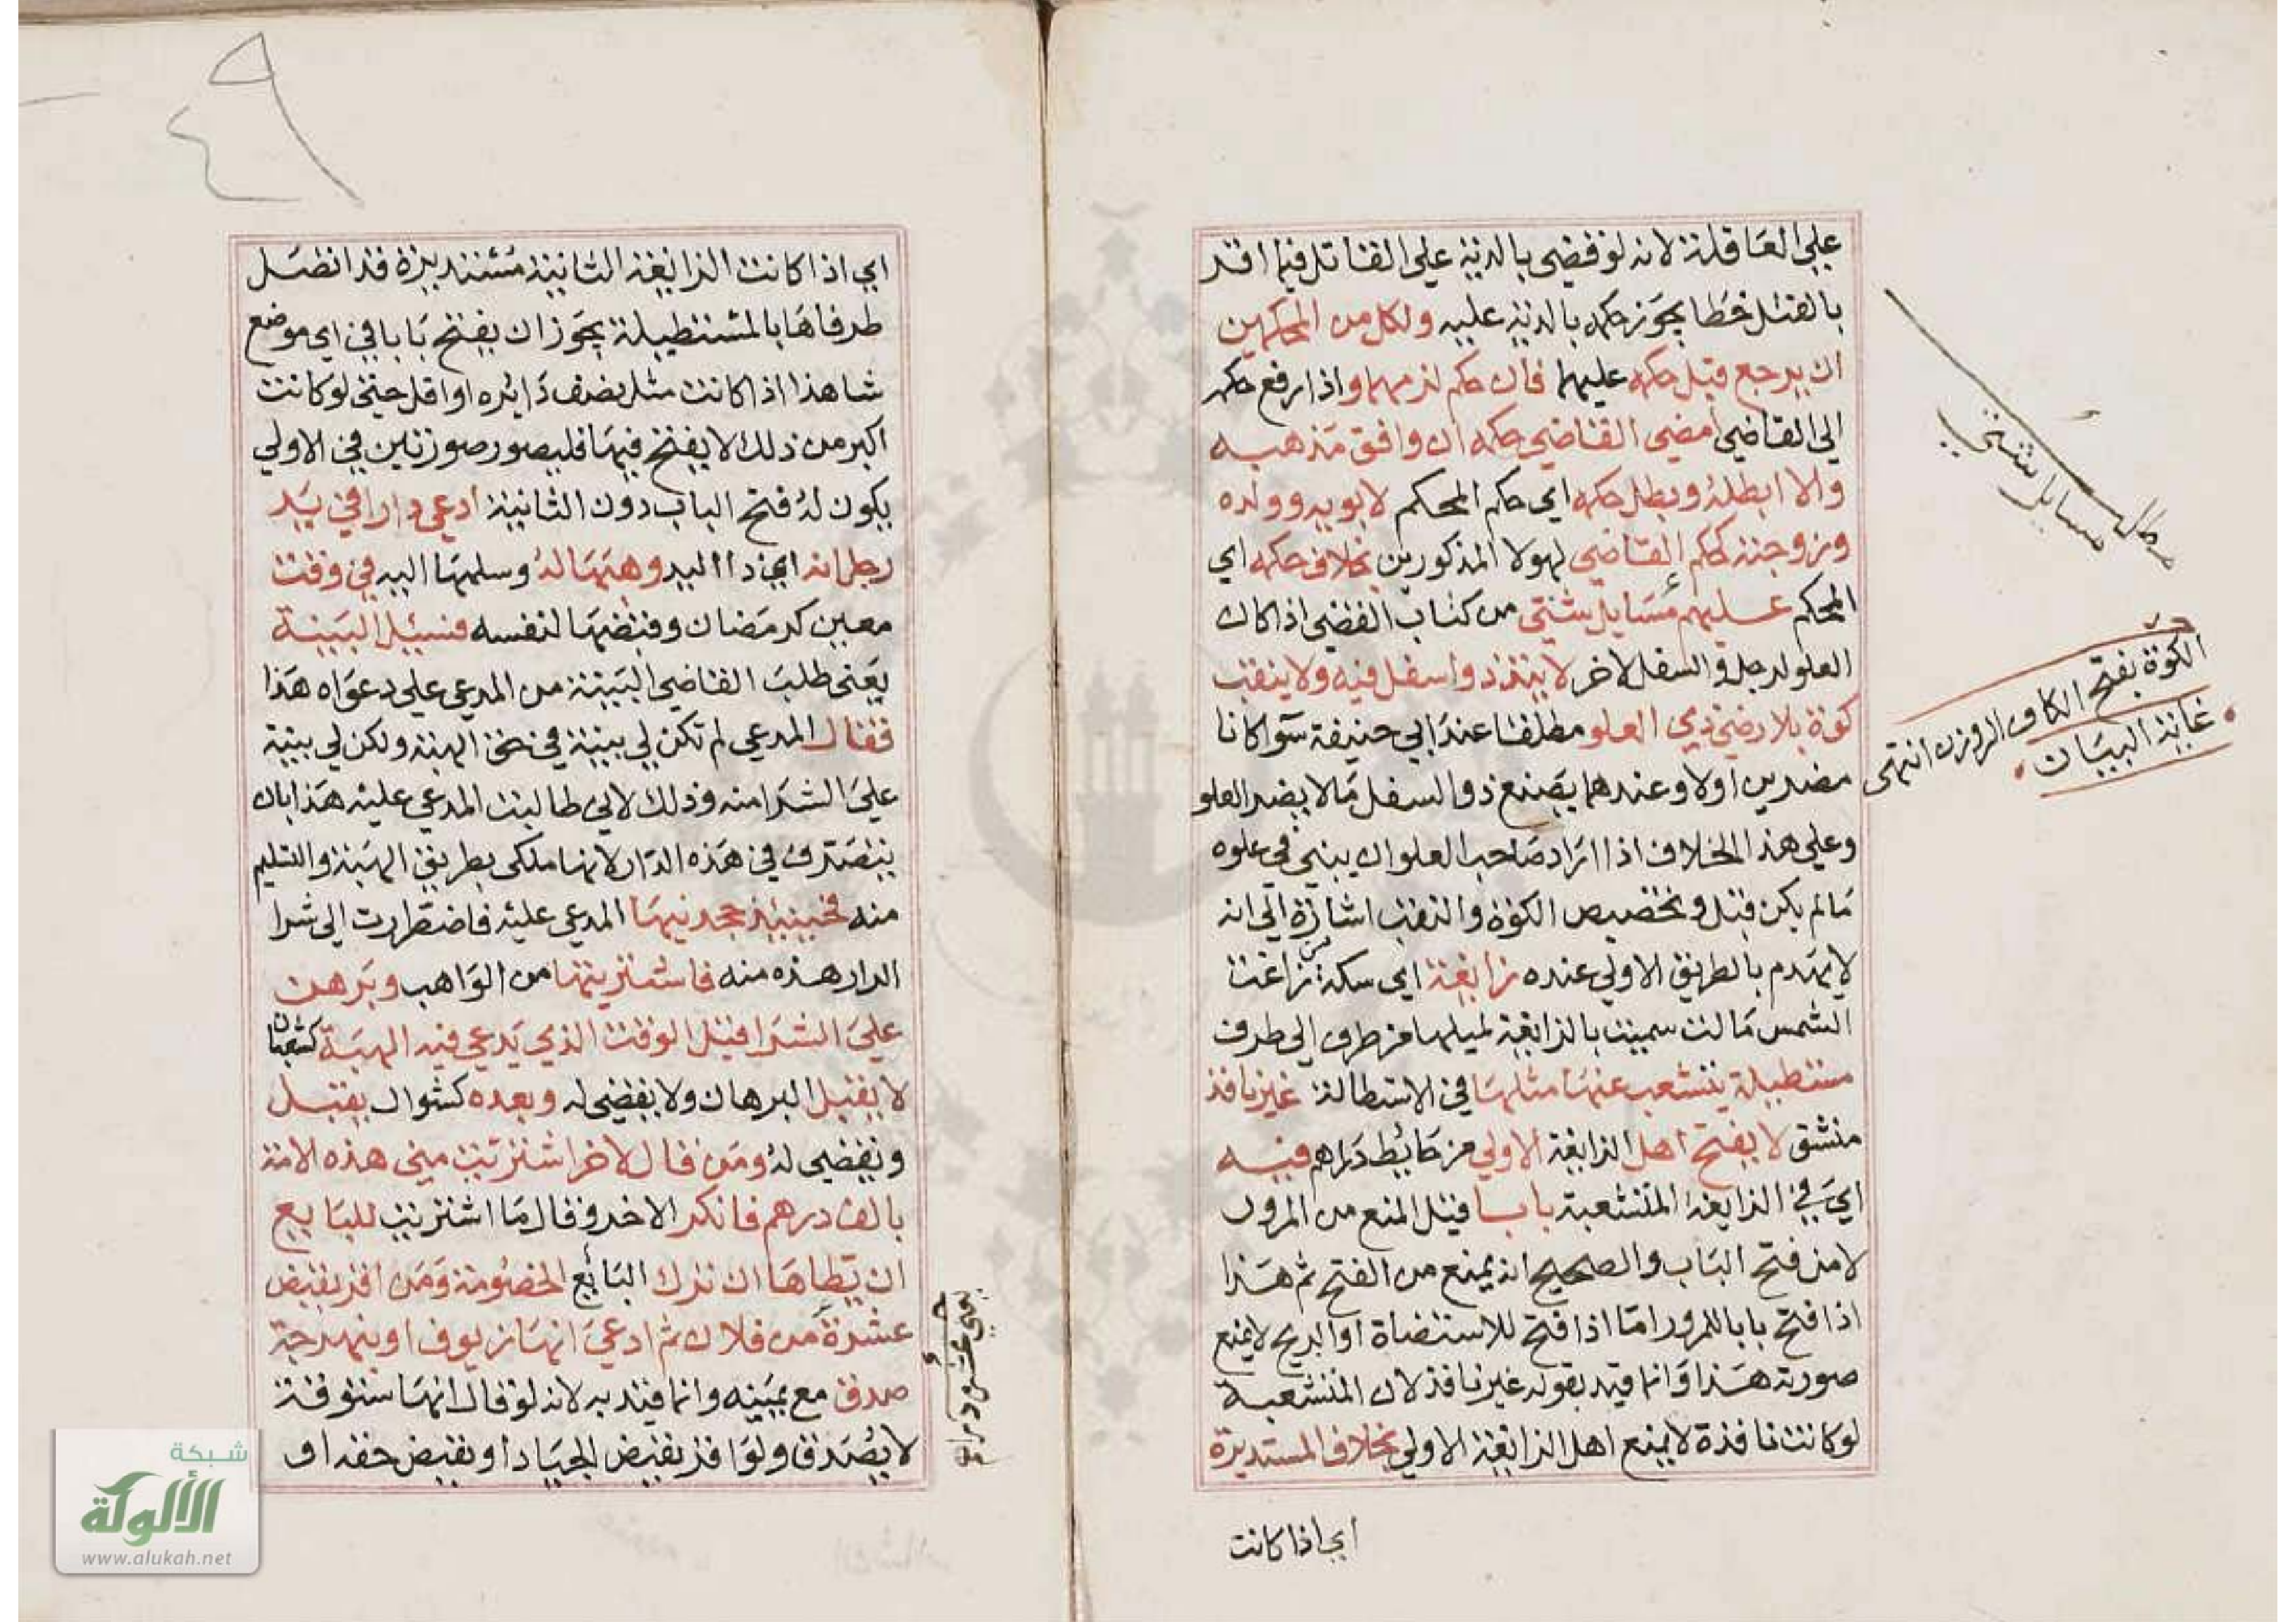 علي العاقلة لانه لو قضي بالدية علي القاتل فيما اقر
بالقتل خطا يجوز حكمه بالدية عليه ولكل من المحكمين
ان يرجع قبل حكمه عليهما فان حكم لزمهما واذا رفع حكمه
الي القاضي امضي القاضي حكمه ان وافق مذهبه
والا ابطله وبطل حكمه اي حكم المحكم لابويه وولده
وزوجته كحكم القاضي لهولا المذكورين بخلاف حكمه اي
المحكم عليهم مسايل شتي من كتاب القضي اذا كان
العلو لرجل والسفل لاخر لا يتد ذو اسفل فيه ولا ينقب
كوة بلا رضي ذي العلو مطلقا عند ابي حنيفة سوا كانا
مضرين اولا وعندهما يصنع ذو السفل ما لا يضر العلو
وعلي هذا الخلاف اذا اراد صاحب العلو ان يبني في علوه
ما لم يكن قبل وتخصيص الكوة والنقب اشارة الي انه
لا يهدم بالطريق الاولي عنده زايغة اي سكة من زاغت
الشمس مالت سميت بالزايغة لميلها من طرف الي طرف
مستطيلة يتشعب عنها مثلها في الاستطالة غير نافذ
منشق لا يفتح اهل الزايغة الاولي من حائط دارهم فيه
اي في الزايغة المتشعبة بابا قيل المنع من المرور
لا من فتح الباب والصحيح انه يمنع من الفتح ثم هذا
اذا فتح بابا للمرور اما اذا فتح للاستضاة او الريح لا يمنع
صورته هذا وانما قيد بقوله غير نافذ لان المتشعبة
لو كانت نافذة لا يمنع اهل الزايغة الاولي بخلاف المستديرة
اي اذا كانت
مسايل شتي
الكوة بفتح الكاف الروزن انتهى
غاية البيان
اي اذا كانت الزايغة الثانية مستديرة قد اتصل
طرفاها بالمستطيلة يجوز ان يفتح بابا في اي موضع
شا هذا اذا كانت مثل نصف دايره او اقل حتي لو كانت
اكبر من ذلك لا يفتح فيها فليصور صورتين في الاولي
يكون له فتح الباب دون الثانية ادعي دارا في يد
رجل انه اي ذا اليد وهبها له وسلمها اليه في وقت
معين كرمضان وقبضها لنفسه فسئيل البينة
يعني طلب القاضي البينة من المدعي علي دعواه هذا
فقال المدعي لم تكن لي بينة في حق الهبة ولكن لي بينة
علي الشرا منه وذلك لاني طالبت المدعي عليه هذا بان
يتصرف في هذه الدار لانها ملكي بطريق الهبة والتسليم
منه فحينئيذ جحد نيها المدعي عليه فاضطررت الي شرا
الدار هذه منه فاشتريتها من الواهب وبرهن
علي الشرا قبل الوقت الذي يدعي فيه الهبة كشعبان
لا يقبل البرهان ولا يقضي له وبعده كشوال يقبل
ونقضي له ومن قال لاخر اشتريت مني هذه الامة
بالف درهم فانكر الاخر وقال ما اشتريت للبايع
ان يطاها ان ترك البائع الخصومة ومن اقر بقبض
عشرة من فلان ثم ادعي انها زيوف او بنهرجة
صدق مع يمينه وانما قيد به لانه لو قال انها ستوقة
لا يصدق ولو اقر بقبض الجياد او بقبض حقه او
يعني عشرة دراهم
شبكة
الألوكة
www.alukah.net